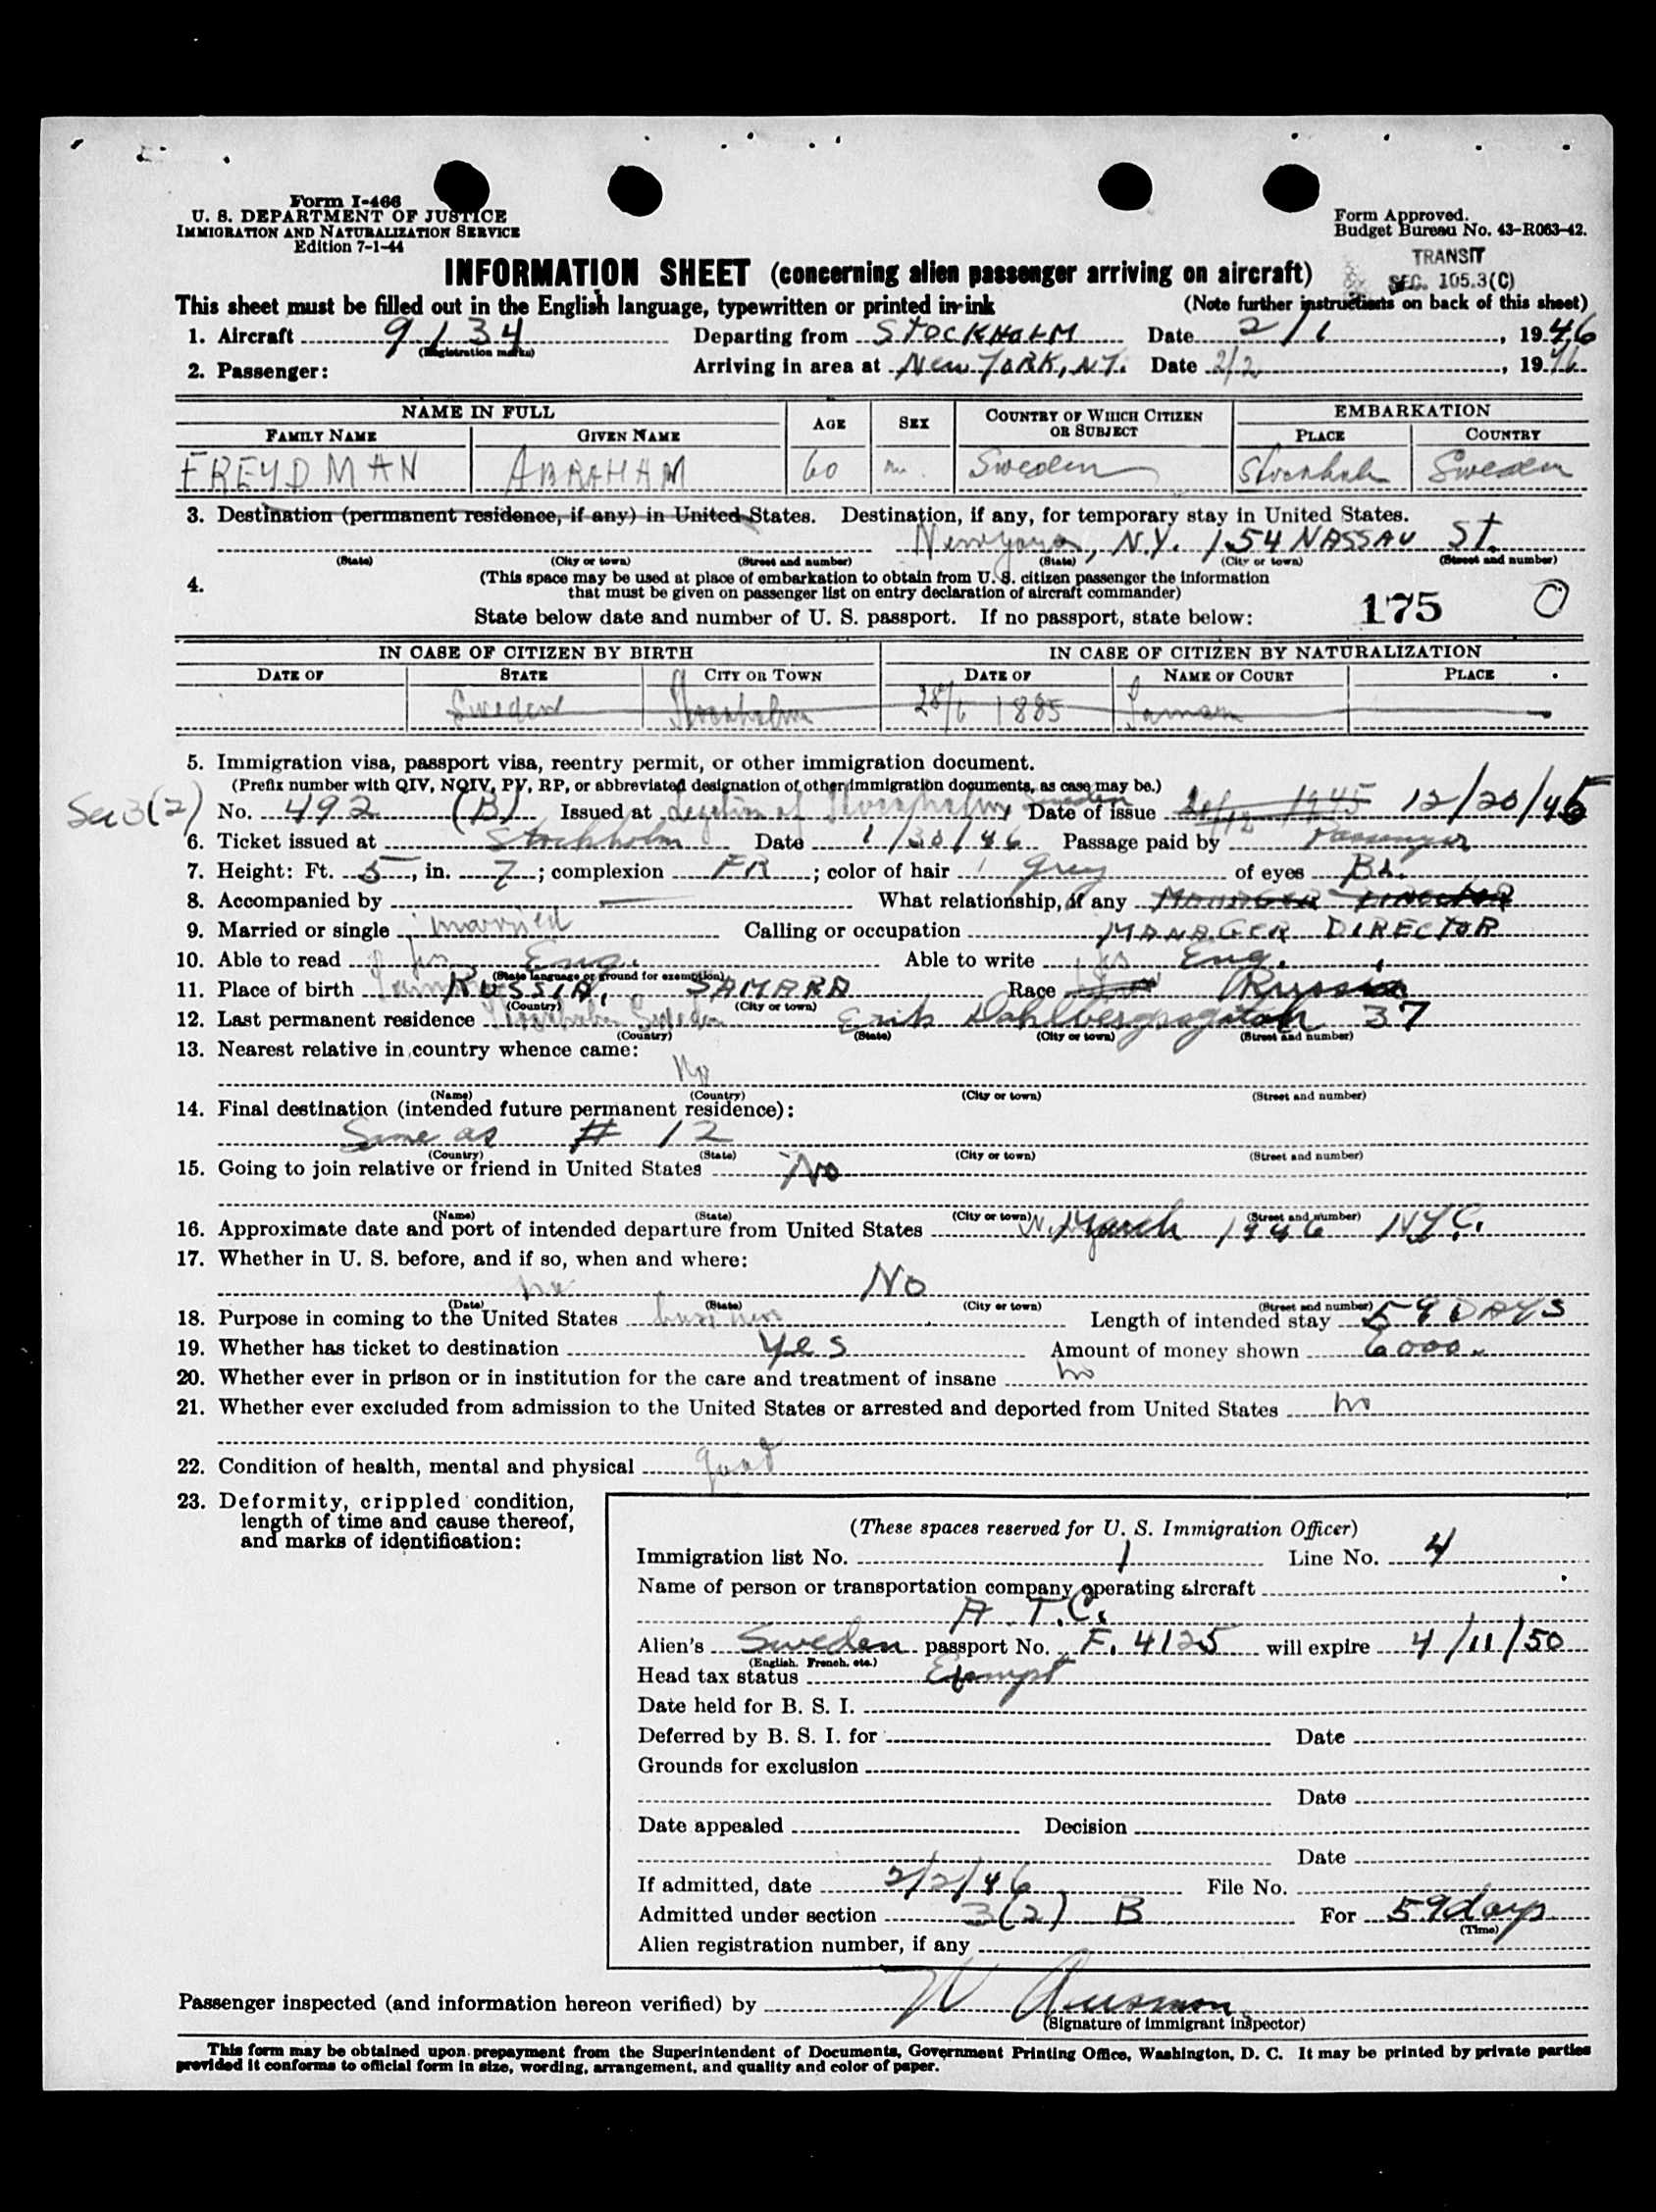 Form I-466
U. S. DEPARTMENT OF JUSTICE
IMMIGRATION AND NATURALIZATION SERVICE
Edition 7-1-44
Form Approved.
Budget Bureau No. 43-R063-42.
TRANSIT
SEC. 105.3(C)
INFORMATION SHEET (concerning alien passenger arriving on aircraft)
This sheet must be filled out in the English language, typewritten or printed in ink (Note further instructions on back of this sheet)
1. Aircraft 9134 Departing from STOCKHOLM Date 2/1, 1946
(Registration marks)
2. Passenger: Arriving in area at New YORK, N.Y. Date 2/2, 1946
NAME IN FULL AGE SEX COUNTRY OF WHICH CITIZEN OR SUBJECT EMBARKATION
FAMILY NAME GIVEN NAME PLACE COUNTRY
FREYDMAN ABRAHAM 60 m. Sweden Stockholm Sweden
3. Destination (permanent residence, if any) in United States. Destination, if any, for temporary stay in United States.
New York, N.Y. 154 NASSAU St.
(State) (City or town) (Street and number) (State) (City or town) (Street and number)
4. (This space may be used at place of embarkation to obtain from U. S. citizen passenger the information
that must be given on passenger list on entry declaration of aircraft commander)
State below date and number of U. S. passport. If no passport, state below: 175 0
IN CASE OF CITIZEN BY BIRTH IN CASE OF CITIZEN BY NATURALIZATION
DATE OF STATE CITY OR TOWN DATE OF NAME OF COURT PLACE
Sweden Stockholm 28/6 1885
5. Immigration visa, passport visa, reentry permit, or other immigration document.
(Prefix number with QIV, NQIV, PV, RP, or abbreviated designation of other immigration documents, as case may be.)
Sec 3(2) No. 492 (B) Issued at Legation of Stockholm Sweden Date of issue 20/12 1945 12/20/45
6. Ticket issued at Stockholm Date 1/30/46 Passage paid by Passenger
7. Height: Ft. 5, in. 7; complexion FR; color of hair grey of eyes BL.
8. Accompanied by — What relationship, if any MANAGER DIRECTOR
9. Married or single married Calling or occupation MANAGER DIRECTOR
10. Able to read yes Eng. Able to write yes Eng.
(State language or ground for exemption)
11. Place of birth RUSSIA, SAMARA Race Russian
(Country) (City or town)
12. Last permanent residence Stockholm Sweden Erik Dahlbergsgatan 37
(Country) (State) (City or town) (Street and number)
13. Nearest relative in country whence came:
No
(Name) (Country) (City or town) (Street and number)
14. Final destination (intended future permanent residence):
Same as # 12
(Country) (State) (City or town) (Street and number)
15. Going to join relative or friend in United States No
(Name) (State) (City or town) (Street and number)
16. Approximate date and port of intended departure from United States March 1946 NYC.
17. Whether in U. S. before, and if so, when and where:
no No
(Date) (State) (City or town) (Street and number)
18. Purpose in coming to the United States business Length of intended stay 59 DAYS
19. Whether has ticket to destination Yes Amount of money shown 6000.
20. Whether ever in prison or in institution for the care and treatment of insane no
21. Whether ever excluded from admission to the United States or arrested and deported from United States no
22. Condition of health, mental and physical good
23. Deformity, crippled condition,
length of time and cause thereof,
and marks of identification:
(These spaces reserved for U. S. Immigration Officer)
Immigration list No. 1 Line No. 4
Name of person or transportation company operating aircraft
A.T.C.
Alien's Sweden passport No. F. 4125 will expire 4/11/50
(English, French, etc.)
Head tax status Exempt
Date held for B. S. I.
Deferred by B. S. I. for Date
Grounds for exclusion
Date
Date appealed Decision
Date
If admitted, date 2/2/46 File No.
Admitted under section 3(2) B For 59 days
(Time)
Alien registration number, if any
Passenger inspected (and information hereon verified) by W
(Signature of immigrant inspector)
This form may be obtained upon prepayment from the Superintendent of Documents, Government Printing Office, Washington, D. C. It may be printed by private parties
provided it conforms to official form in size, wording, arrangement, and quality and color of paper.